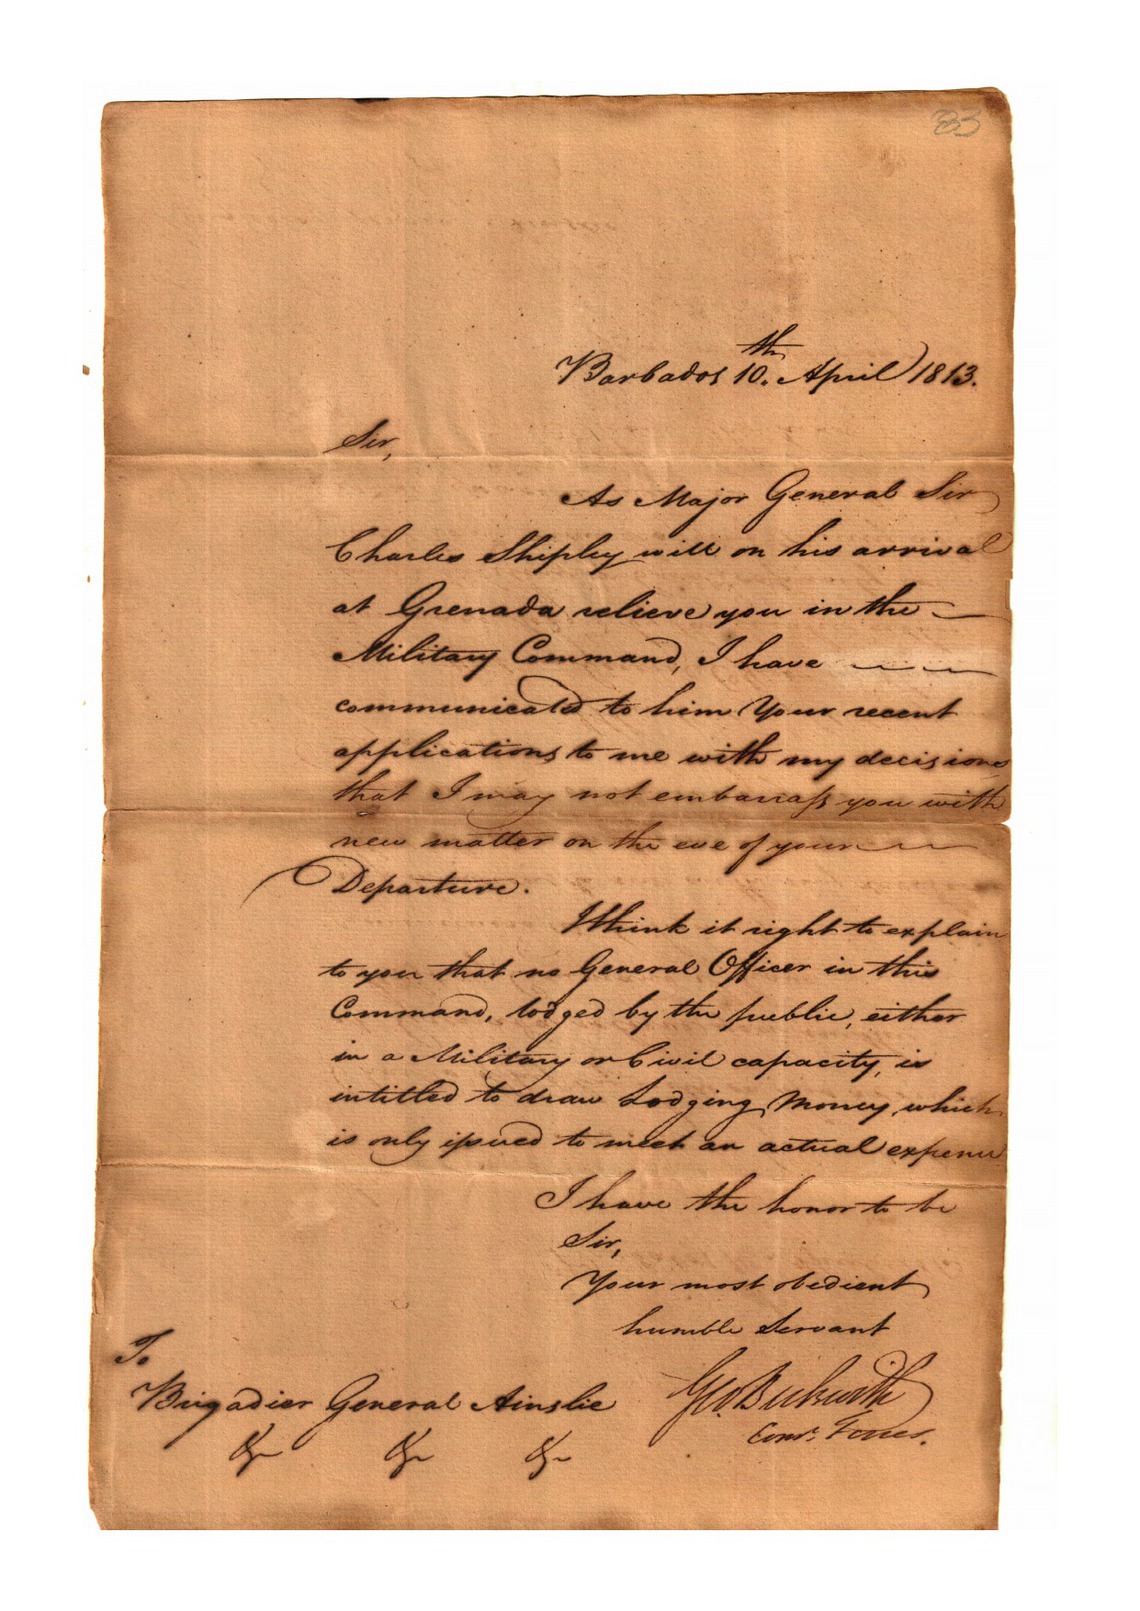 83
Barbados 10.th April 1813.
Sir,
As Major General Sir
Charles Shipley will on his arrival
at Grenada relieve you in the
Military Command, I have
communicated to him Your recent
applications to me with my decisions
that I may not embarrass you with
new matter on the eve of your
Departure.
I think it right to explain
to you that no General Officer in this
Command, lodged by the public, either
in a Military or Civil capacity, is
intitled to draw Lodging Money, which
is only issued to meet an actual expense
I have the honor to be
Sir,
Your most obedient
humble Servant
Geo. Beckwith
Comr. Forces.
To
Brigadier General Ainslie
&c &c &c